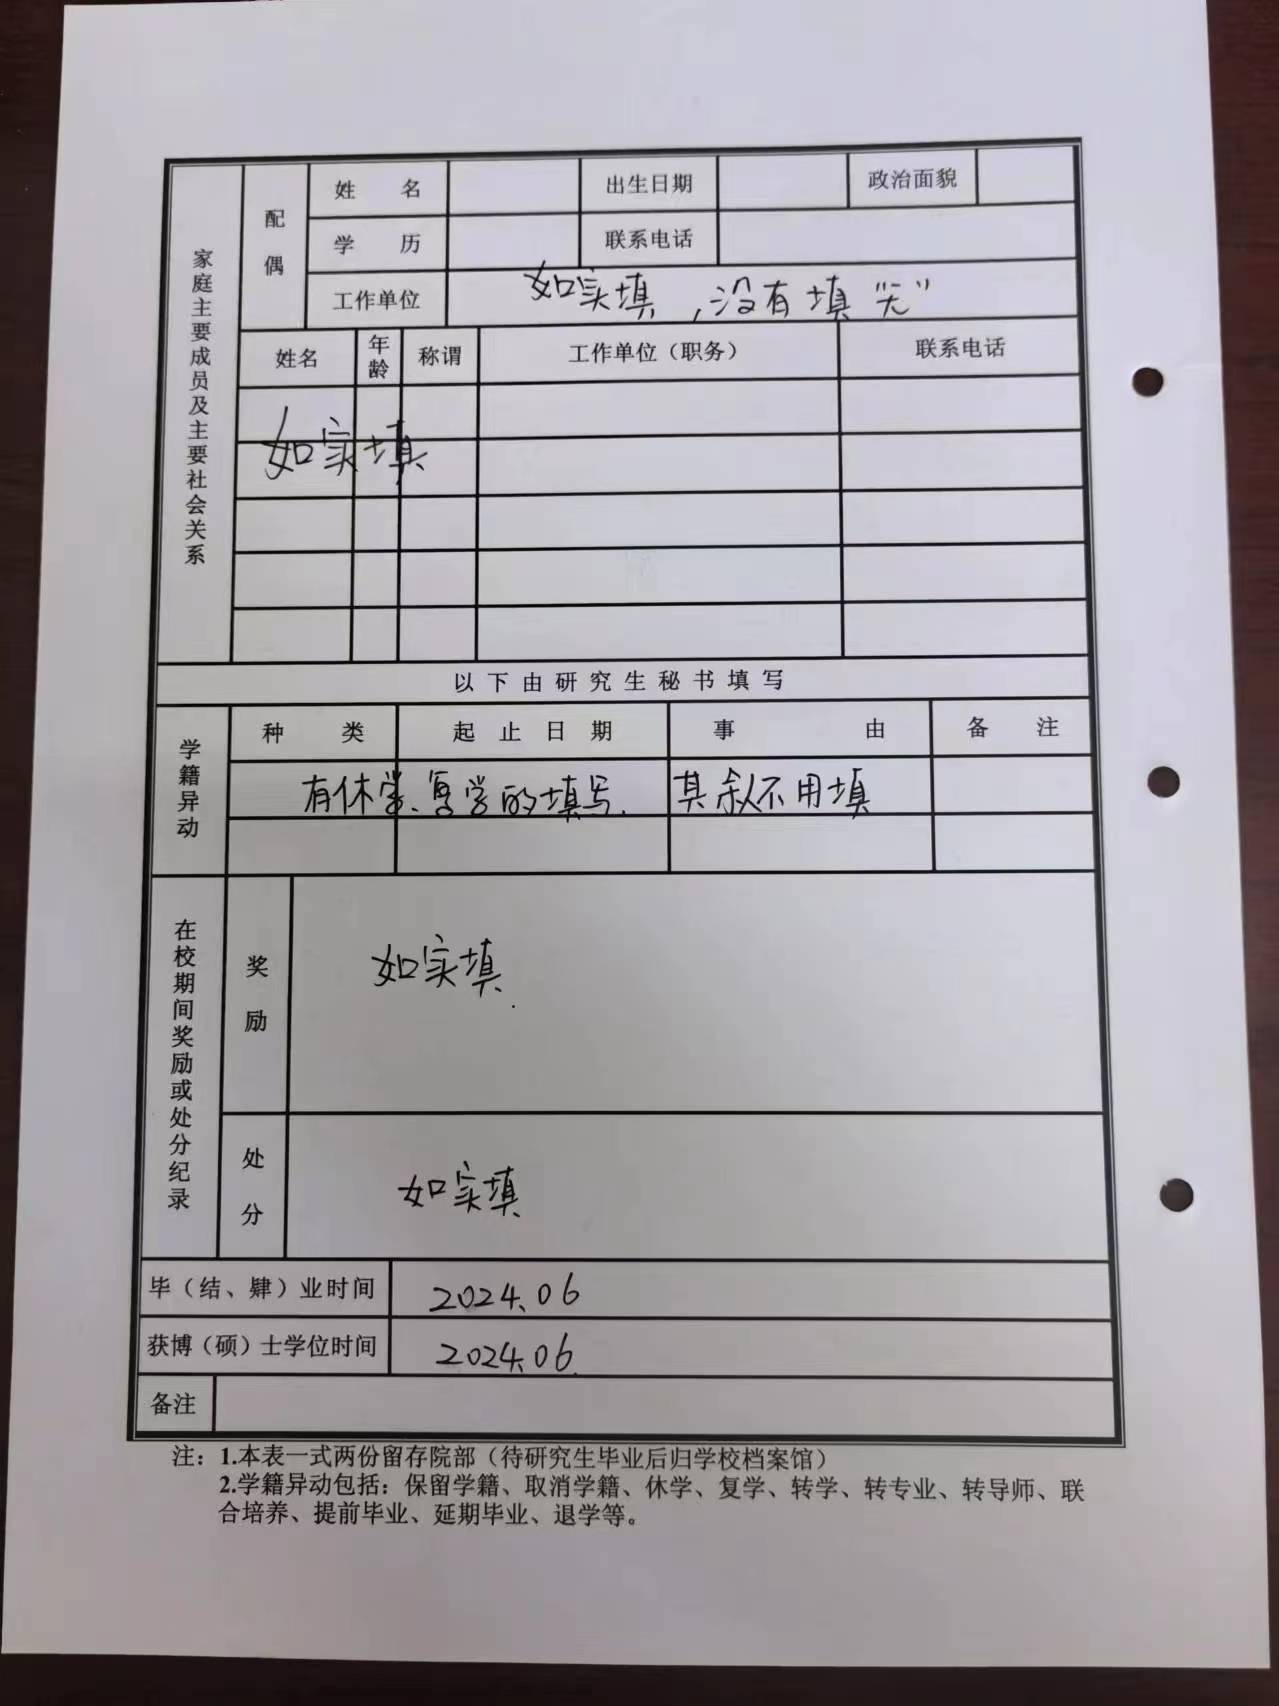 家庭主要成员及主要社会关系
配偶
姓 名 出生日期 政治面貌
学 历 联系电话
工作单位 如实填,没有填“无”
姓名 年龄 称谓 工作单位(职务) 联系电话
如实填
以下由研究生秘书填写
学籍异动
种 类 起止日期 事 由 备 注
有休学、复学的填写. 其余不用填
在校期间奖励或处分纪录
奖励
如实填.
处分
如实填
毕(结、肄)业时间 2024.06
获博(硕)士学位时间 2024.06.
备注
注:1.本表一式两份留存院部(待研究生毕业后归学校档案馆)
2.学籍异动包括:保留学籍、取消学籍、休学、复学、转学、转专业、转导师、联
合培养、提前毕业、延期毕业、退学等。